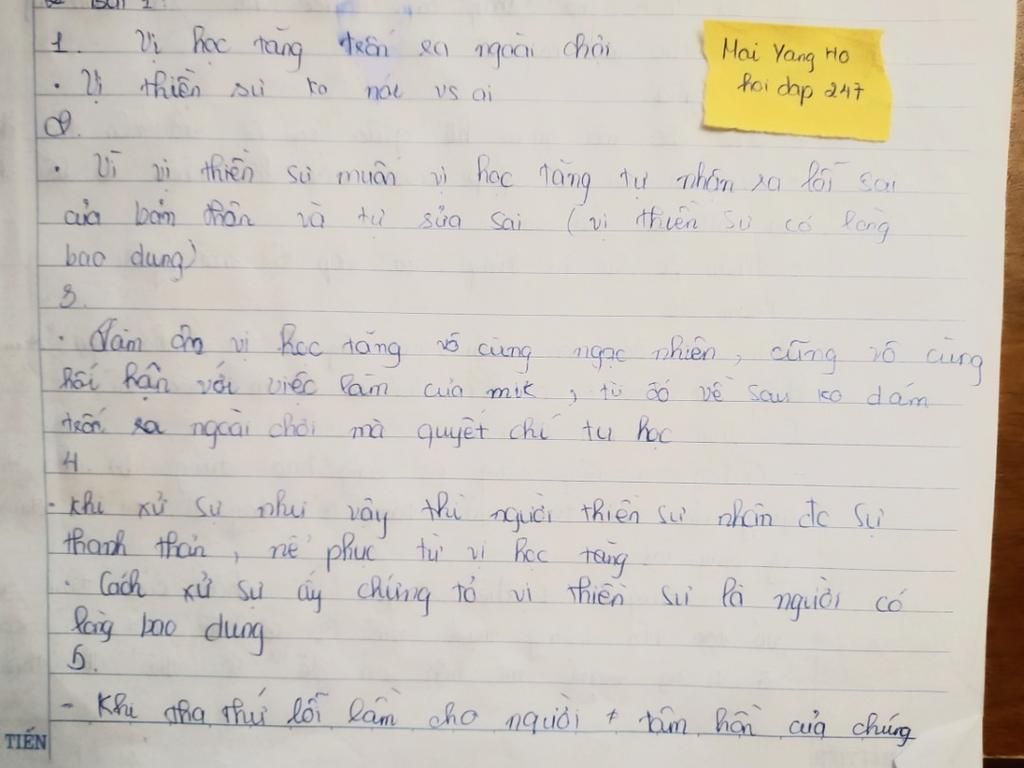 Bài 1:
1. Vị học tăng trốn ra ngoài chơi
Mai Yang Ho
hoi dap 247
. Vị thiền sư ko nói vs ai
2.
. Vì vị thiền sư muốn vị học tăng tự nhân ra lỗi sai
của bản thân và tự sửa sai (vị thiền sư có lòng
bao dung)
3.
. Tâm vị học tăng vô cùng ngạc nhiên, cũng vô cùng
hối hận với việc làm của mik, từ đó về sau ko dám
trốn ra ngoài chơi mà quyết chí tu học
4
- Khi xử sự như vậy thì người thiền sư nhân đc sự
thanh thản, nể phục từ vị học tăng
. Cách xử sự ấy chứng tỏ vị thiền sư là người có
lòng bao dung
5.
- Khi tha thứ lỗi lầm cho người + tâm hồn của chúng
TIẾN